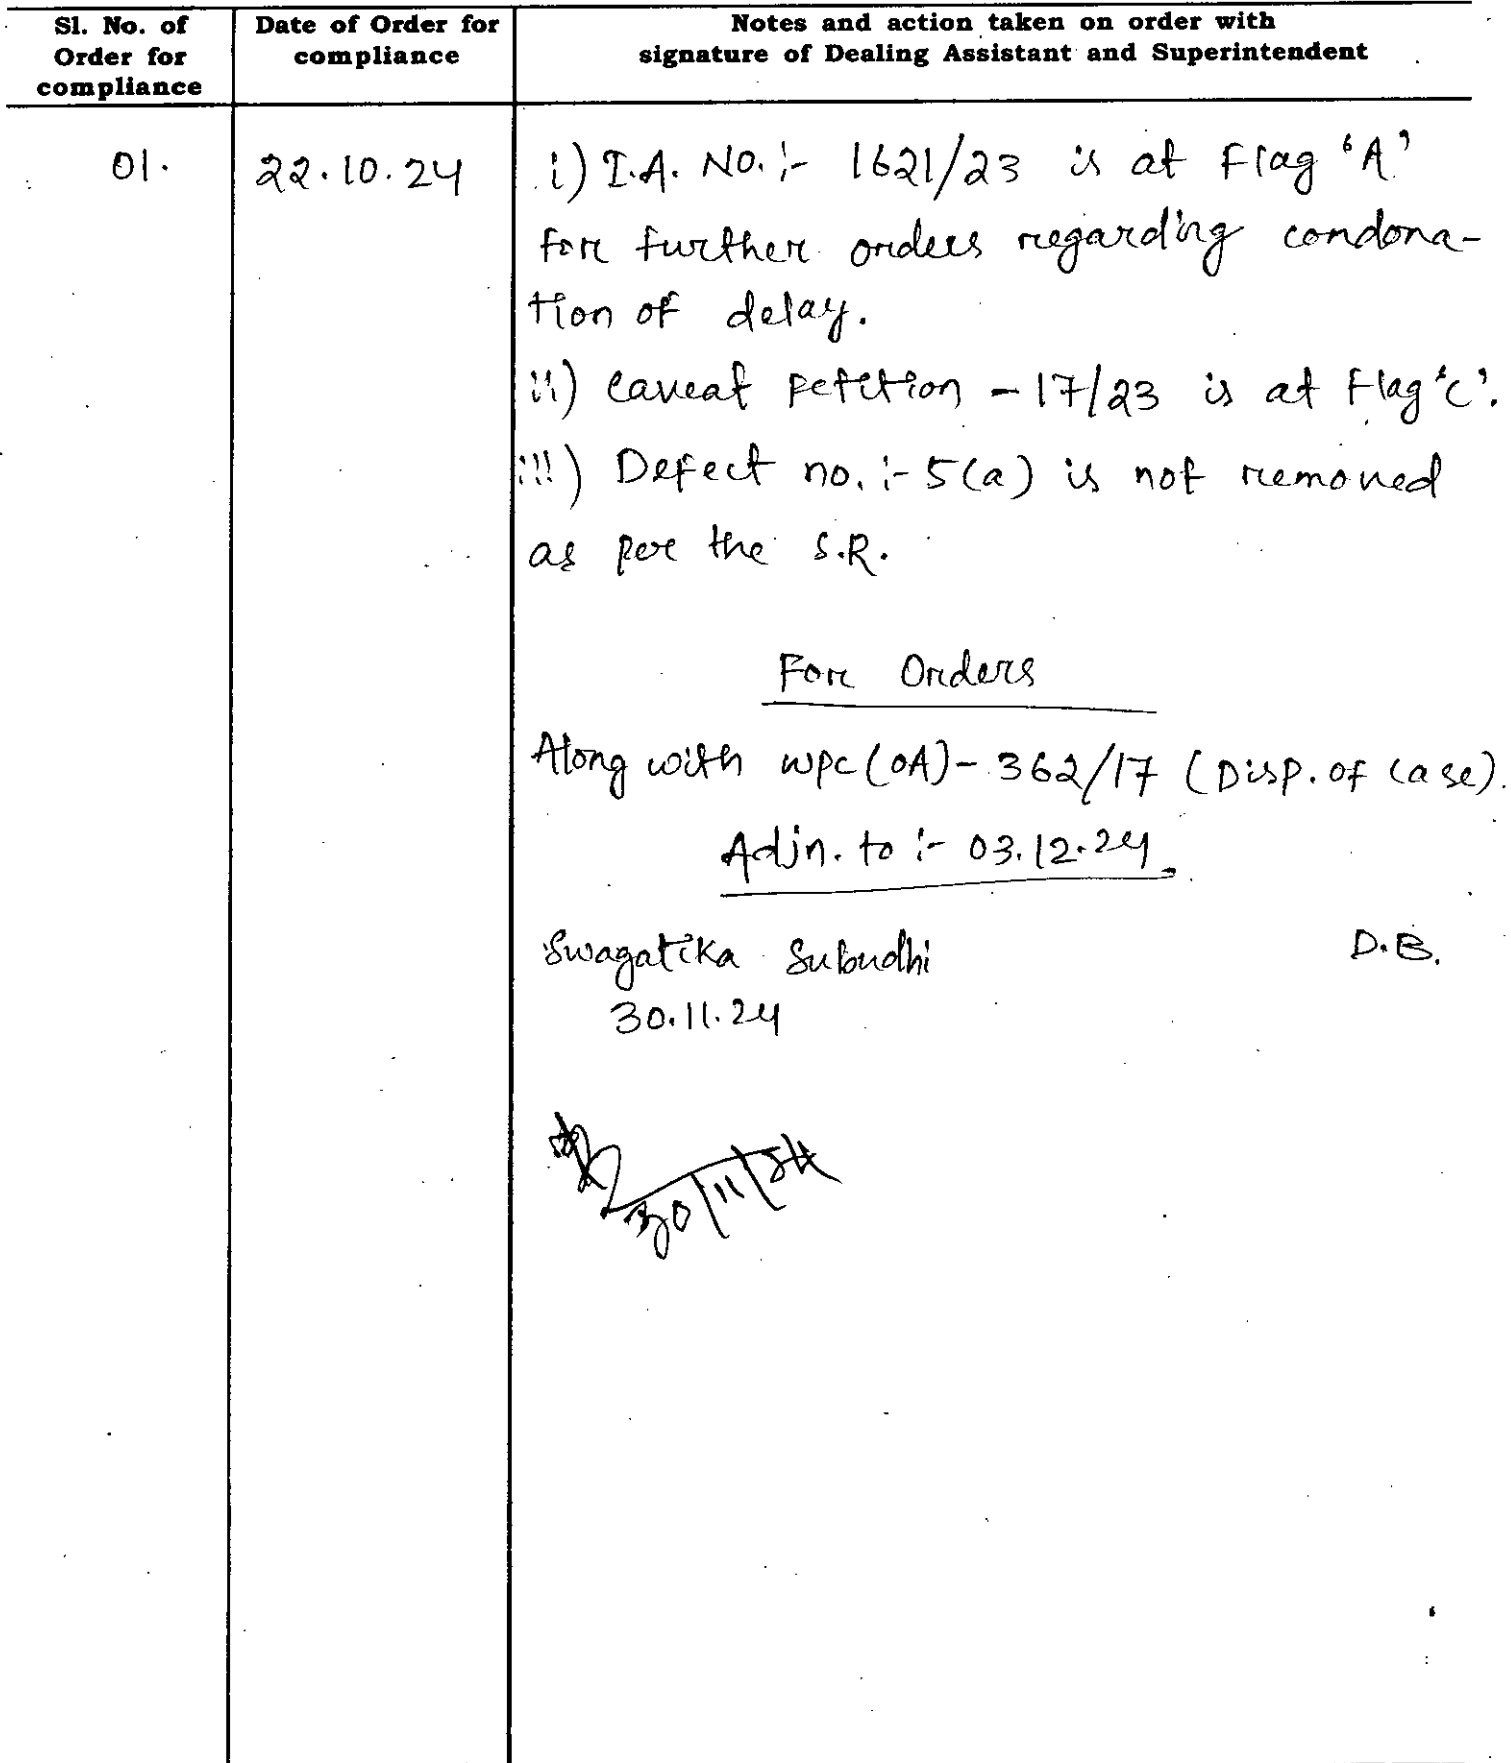 Sl. No. of
Order for
compliance
Date of Order for
compliance
Notes and action taken on order with
signature of Dealing Assistant and Superintendent
01.
22.10.24
i) I.A. No. :- 1621/23 is at Flag 'A'
for further orders regarding condona-
tion of delay.
ii) Caveat Petition - 17/23 is at Flag 'C'.
iii) Defect no. :- 5(a) is not removed
as per the S.R.
For Orders
Along with WPC(OA)- 362/17 (Disp. of case).
Adjn. to :- 03.12.24
Swagatika Subudhi
D.B.
30.11.24
30/11/24